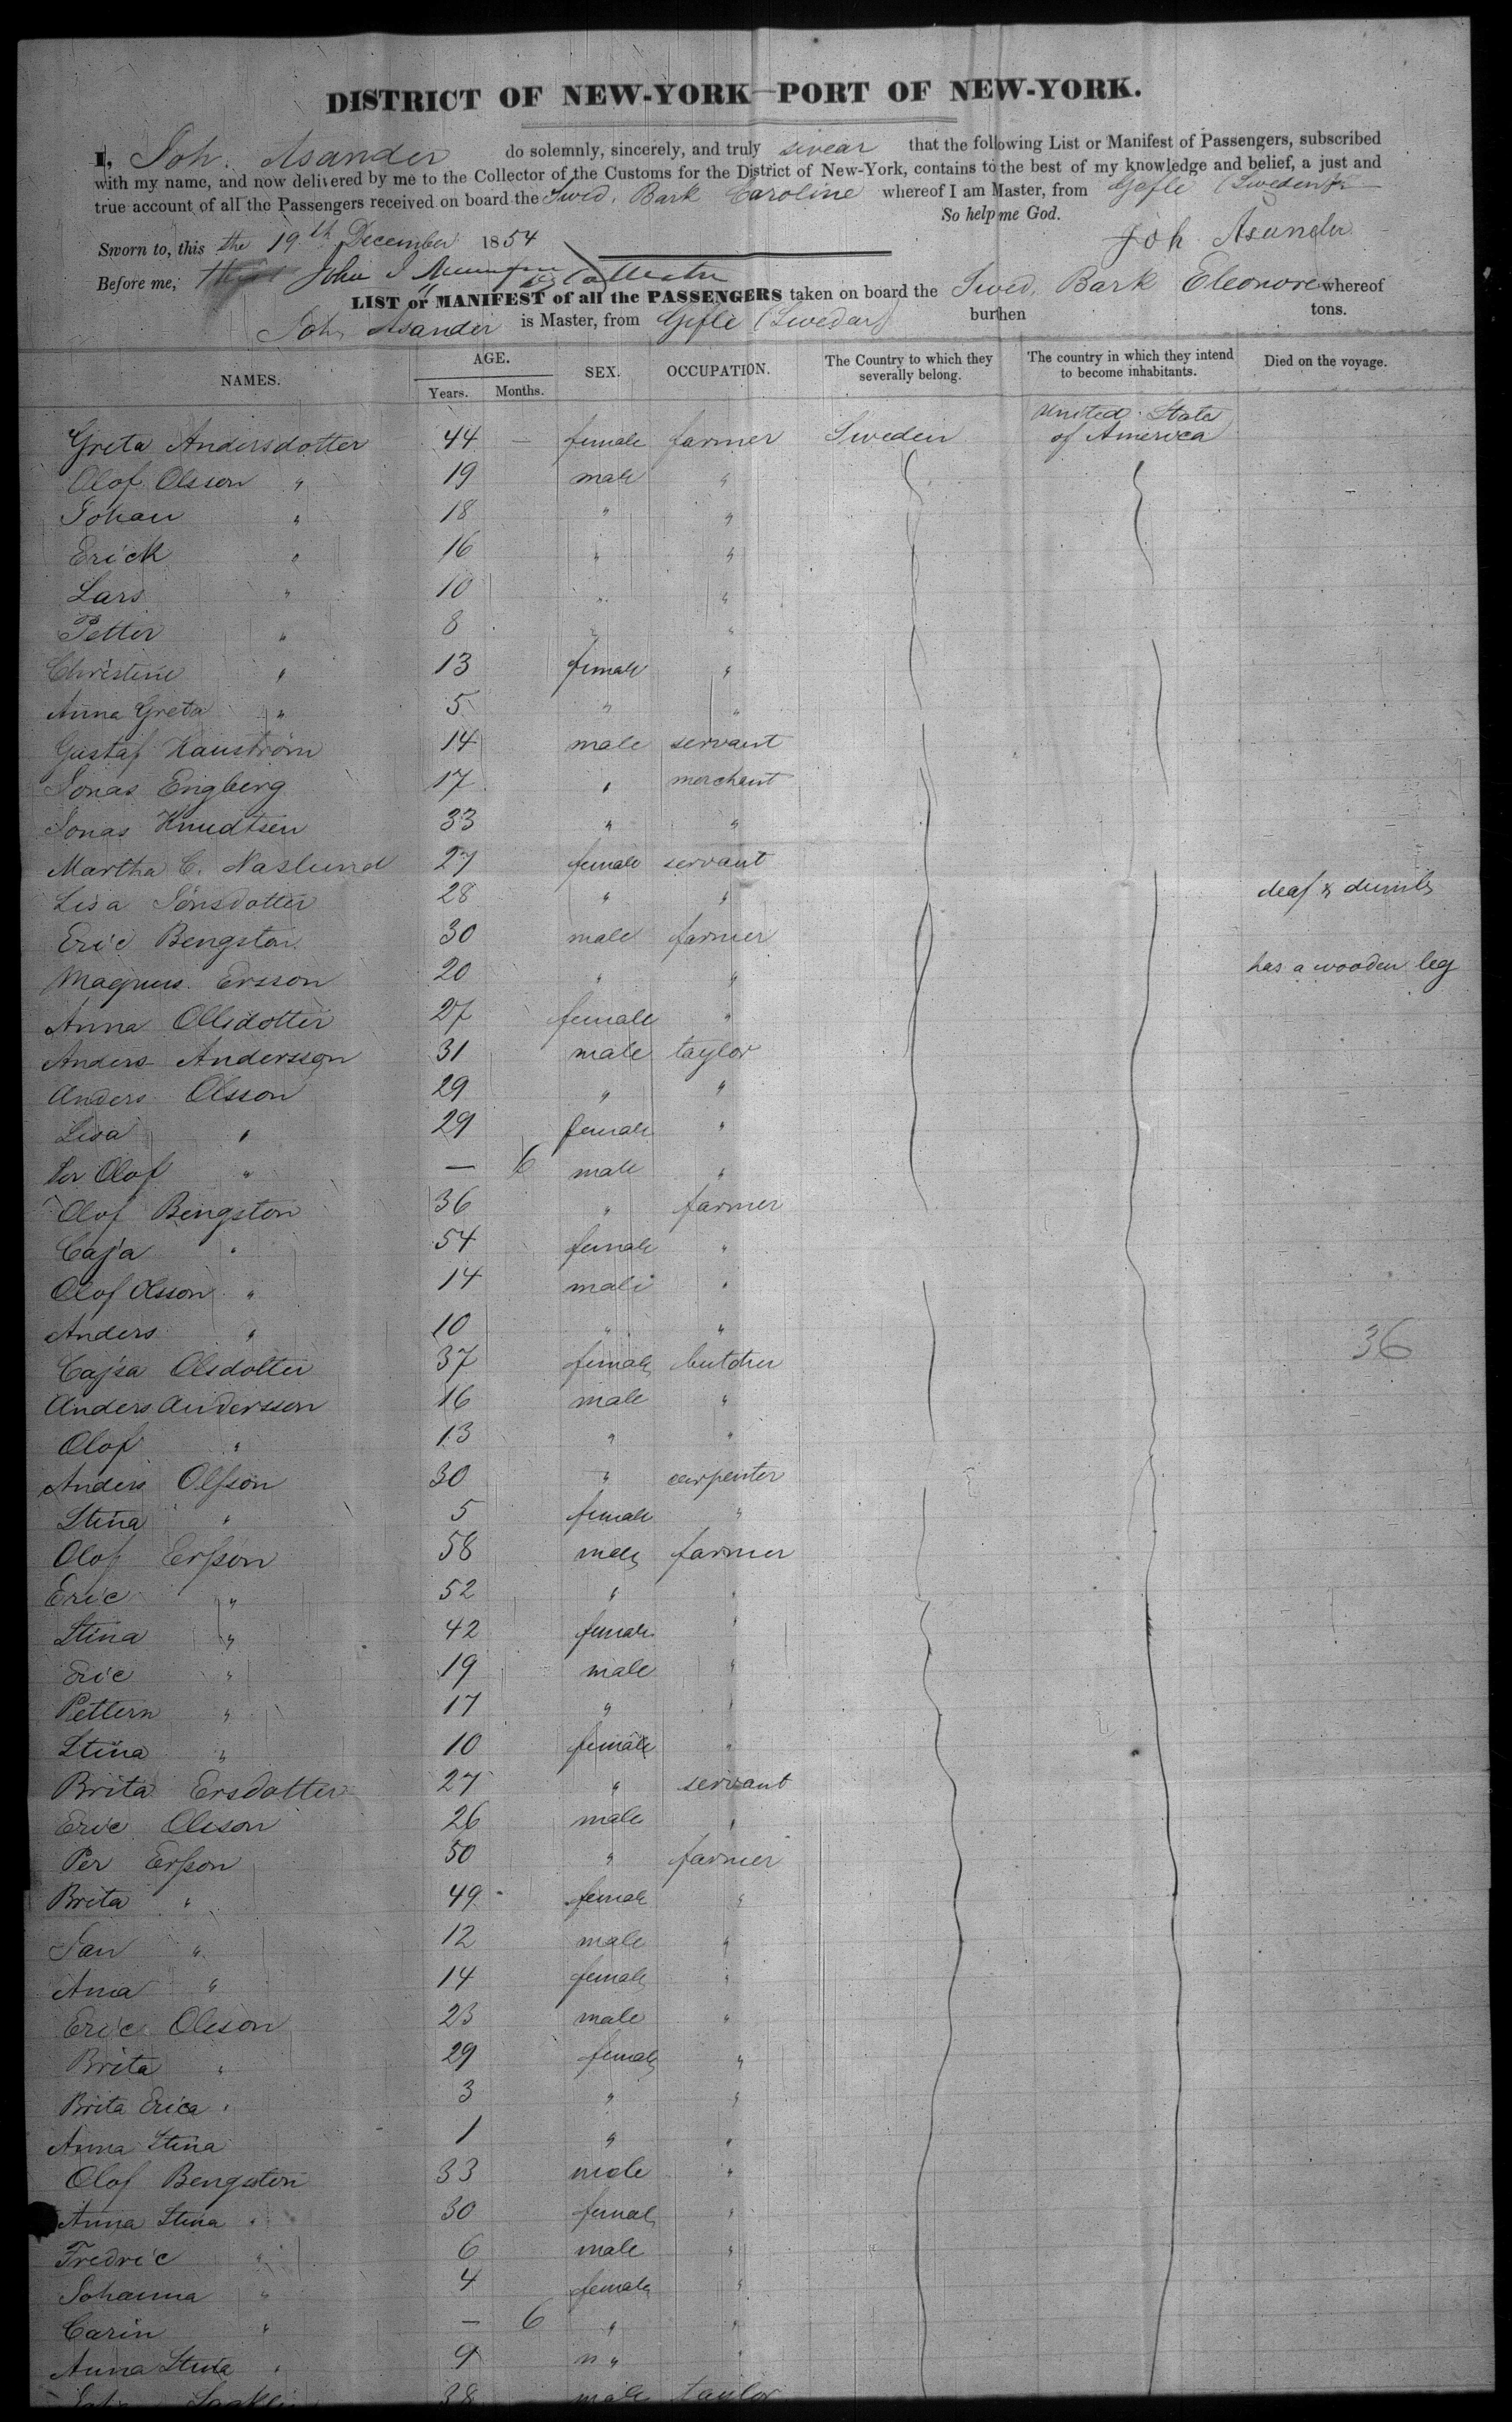 DISTRICT OF NEW-YORK—PORT OF NEW-YORK.
I, Joh. Asander do solemnly, sincerely, and truly swear that the following List or Manifest of Passengers, subscribed
with my name, and now delivered by me to the Collector of the Customs for the District of New-York, contains to the best of my knowledge and belief, a just and
true account of all the Passengers received on board the Swed. Bark Caroline whereof I am Master, from Gefle (Sweden)
So help me God.
Sworn to, this the 19th December 1854 Joh Asander
Before me, John
LIST or MANIFEST of all the PASSENGERS taken on board the Swed. Bark Eleonore whereof
Joh. Asander is Master, from Gefle (Sweden) burthen tons.
NAMES. AGE. Years. Months. SEX. OCCUPATION. The Country to which they severally belong. The country in which they intend to become inhabitants. Died on the voyage.
Greta Andersdotter 44 — female farmer Sweden United States of America
Olof Olsson " 19 male "
Johan " 18 " "
Erick " 16 " "
Lars " 10 " "
Petter " 8 " "
Christine " 13 female "
Anna Greta " 5 " "
Gustaf 14 male servant
Jonas Engberg 17 " merchant
Jonas Knudtsen 33 " "
Martha C. Naslund 27 female servant
Lisa Jönsdotter 28 " " deaf & dumb
Eric Bengston 30 male farmer
Magnus Ersson 20 " " has a wooden leg
Anna Ollsdotter 27 female "
Anders Andersson 31 male taylor
Anders Olsson 29 " "
Lisa " 29 female "
Per Olof " — 6 male "
Olof Bengston 36 " farmer
Cajsa " 54 female "
Olof Olsson " 14 male "
Anders " 10 " "
36
Cajsa Olsdotter 37 female butcher
Anders Andersson 16 male "
Olof " 13 " "
Anders Olsson 30 " carpenter
Stina " 5 female "
Olof Ersson 58 male farmer
Eric " 52 " "
Stina " 42 female "
Eric " 19 male "
Pettern " 17 " "
Stina " 10 female "
Brita Ersdotter 27 " servant
Eric Oleson 26 male "
Per Ersson 50 " farmer
Brita " 49 female "
Jan " 12 male "
Anna " 14 female "
Eric Oleson 23 male "
Brita " 29 female "
Brita Erica " 3 " "
Anna Stina 1 " "
Olof Bengston 33 male "
Anna Stina " 30 female "
Fredric " 6 male "
Johanna " 4 female "
Carin " — 6 " "
Anna Stina " 9 " "
38 male taylor